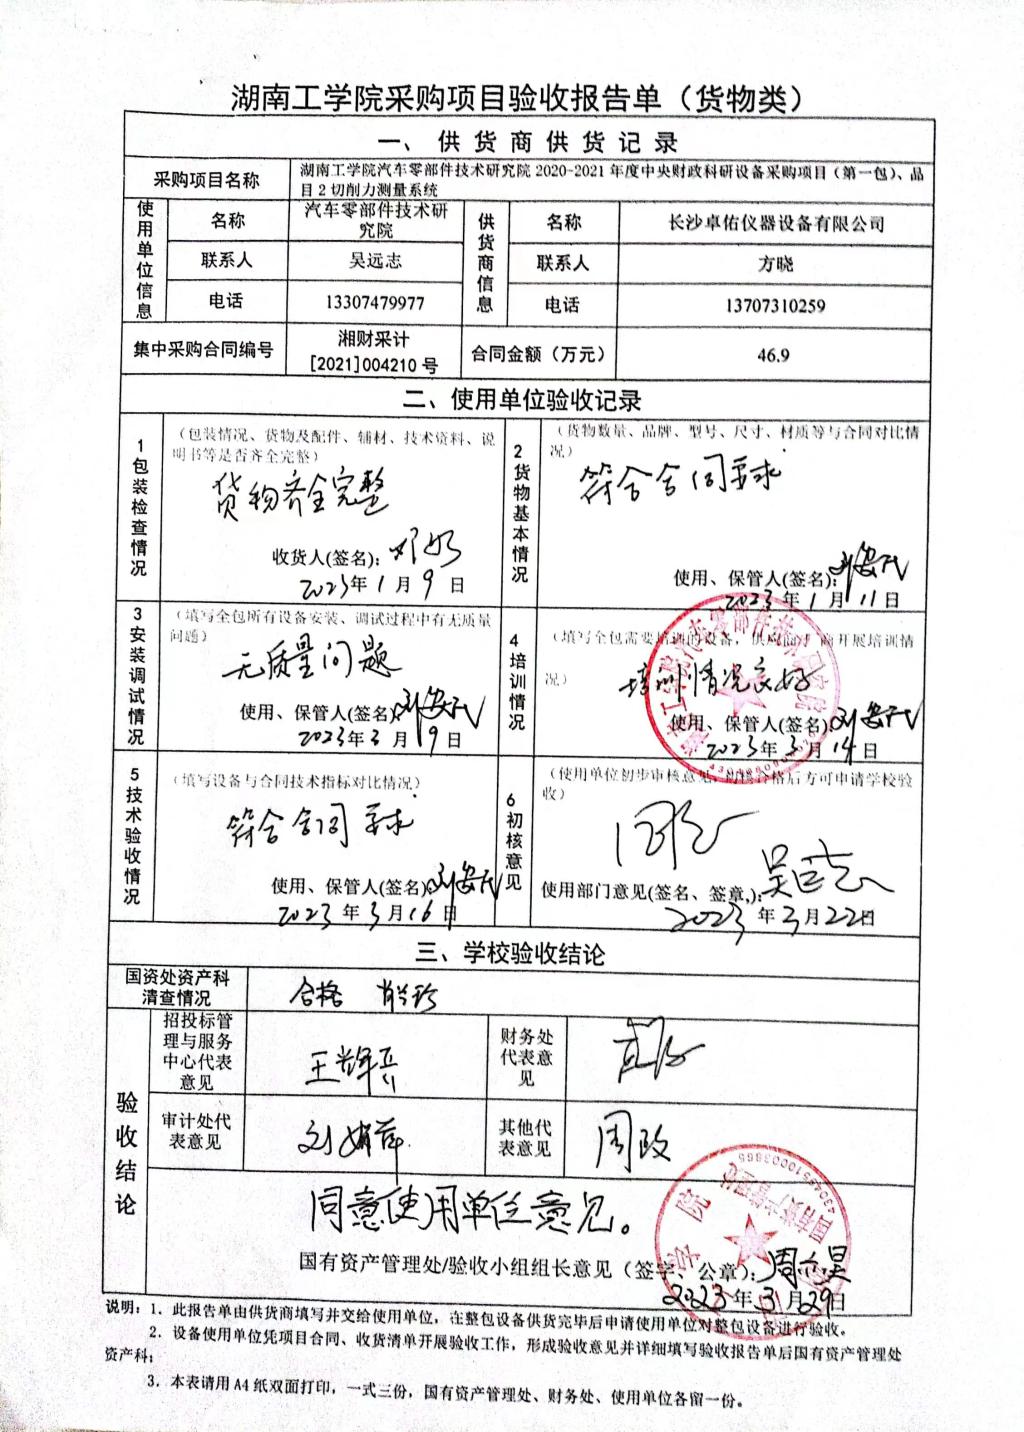 湖南工学院采购项目验收报告单（货物类）
一、供货商供货记录
采购项目名称
湖南工学院汽车零部件技术研究院 2020-2021 年度中央财政科研设备采购项目（第一包）、品
目 2 切削力测量系统
使用单位信息
名称
汽车零部件技术研
究院
供货商信息
名称
长沙卓佑仪器设备有限公司
联系人
吴远志
联系人
方晓
电话
13307479977
电话
13707310259
集中采购合同编号
湘财采计
[2021]004210 号
合同金额（万元）
46.9
二、使用单位验收记录
1包装检查情况
（包装情况、货物及配件、辅材、技术资料、说
明书等是否齐全完整）
货物齐全完整
收货人(签名):
2023年1月9日
2货物基本情况
（货物数量、品牌、型号、尺寸、材质等与合同对比情
况）
符合合同要求
使用、保管人(签名):
2023年1月11日
3安装调试情况
（填写全包所有设备安装、调试过程中有无质量
问题）
无质量问题
使用、保管人(签名)
2023年3月9日
4培训情况
（填写全包需要培训的设备，供应商开展培训情
况）
培训情况良好
使用、保管人(签名):
2023年3月14日
5技术验收情况
（填写设备与合同技术指标对比情况）
符合合同要求
使用、保管人(签名):
2023年3月16日
6初核意见
（使用单位初步审核意见，初核合格后方可申请学校验
收）
同意
使用部门意见(签名、签章,): 吴远志
2023年3月22日
三、学校验收结论
国资处资产科
清查情况
合格
验收结论
招投标管
理与服务
中心代表
意见
财务处
代表意
见
审计处代
表意见
其他代
表意见
周政
同意使用单位意见。
国有资产管理处/验收小组组长意见（签字、公章）:
2023年3月29日
4304510003865
国有资产管理处
说明: 1. 此报告单由供货商填写并交给使用单位，在整包设备供货完毕后申请使用单位对整包设备进行验收。
2. 设备使用单位凭项目合同、收货清单开展验收工作，形成验收意见并详细填写验收报告单后国有资产管理处
资产科;
3. 本表请用 A4 纸双面打印，一式三份，国有资产管理处、财务处、使用单位各留一份。